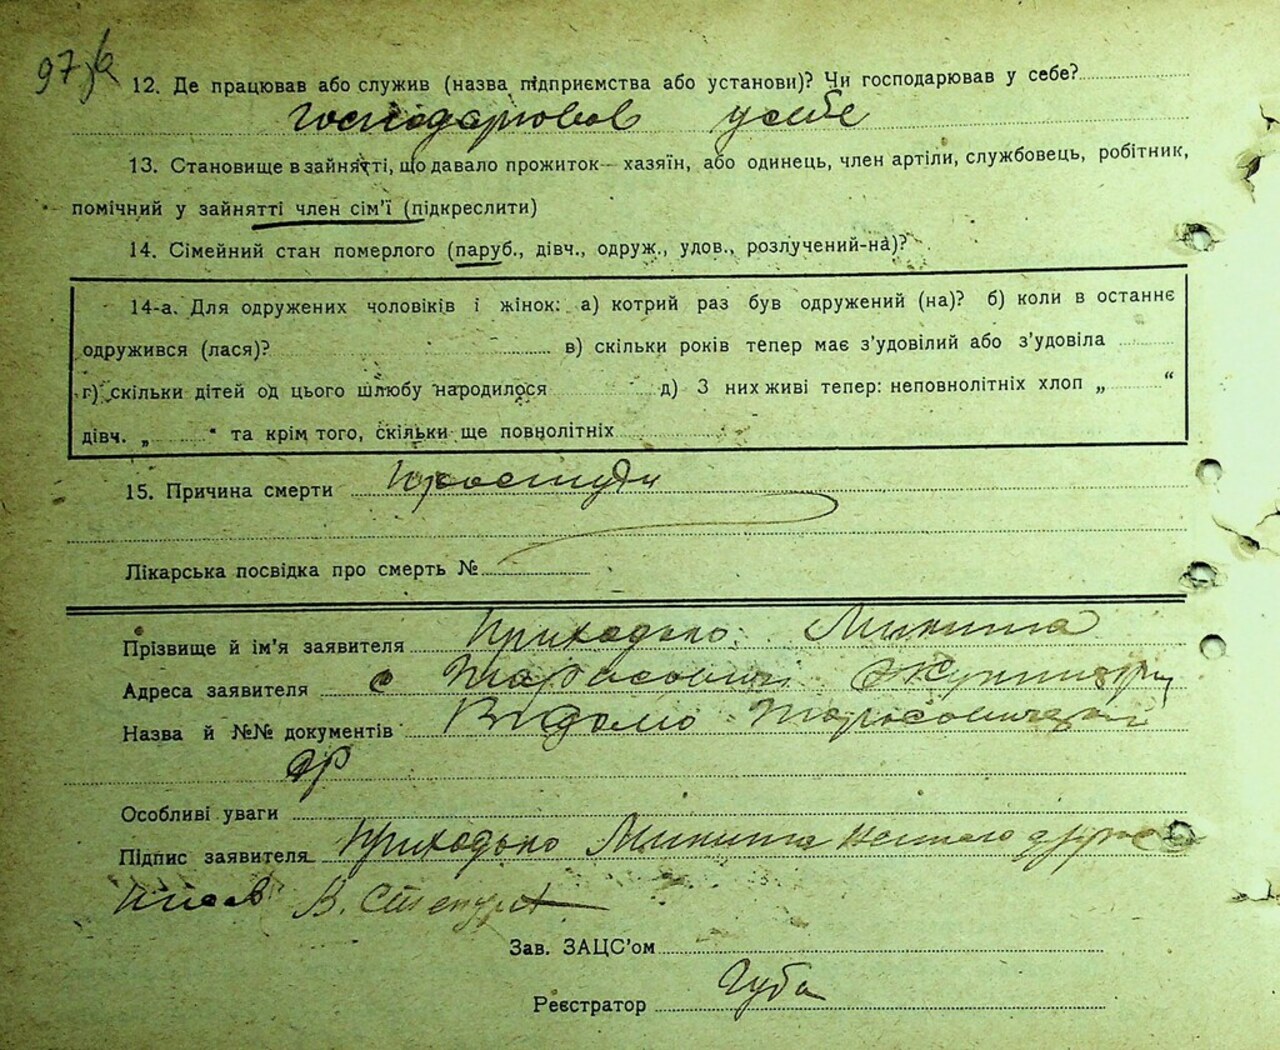 97
12. Де працював або служив (назва підприємства або установи)? Чи господарював у себе?
господарював у себе
13. Становище в зайнятті, що давало прожиток — хазяїн, або одинець, член артіли, службовець, робітник,
помічний у зайнятті член сім'ї (підкреслити)
14. Сімейний стан померлого (паруб., дівч., одруж., удов., розлучений-на)?
14-а. Для одружених чоловіків і жінок: а) котрий раз був одружений (на)? б) коли в останнє
одружився (лася)? в) скільки років тепер має з'удовілий або з'удовіла
г) скільки дітей од цього шлюбу народилося д) З них живі тепер: неповнолітніх хлоп „ “
дівч. „ “ та крім того, скільки ще повнолітніх
15. Причина смерти Простуди
Лікарська посвідка про смерть №
Прізвище й ім'я заявителя Приходько Микита
Адреса заявителя с
Назва й №№ документів Відомо
Особливі уваги
Підпис заявителя Приходько Микита
В.
Зав. ЗАЦС'ом
Реєстратор Губа